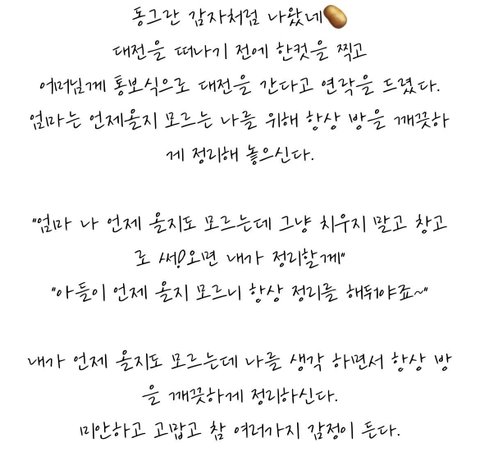 동그란 감자처럼 나왔네🥔
대전을 떠나기 전에 한컷을 찍고
어머님께 통보식으로 대전을 간다고 연락을 드렸다.
엄마는 언제올지 모르는 나를 위해 항상 방을 깨끗하
게 정리해 놓으신다.
"엄마 나 언제 올지도 모르는데 그냥 치우지 말고 창고
로 써!오면 내가 정리할게"
"아들이 언제 올지 모르니 항상 정리를 해둬야죠~"
내가 언제 올지도 모르는데 나를 생각 하면서 항상 방
을 깨끗하게 정리하신다.
미안하고 고맙고 참 여러가지 감정이 든다.